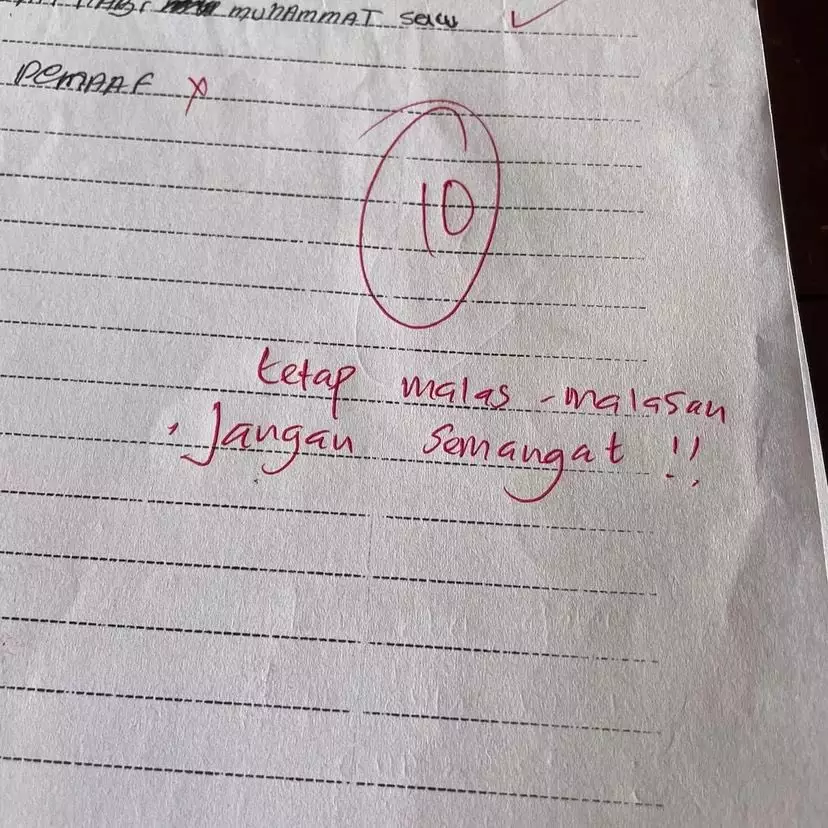 muhAmmAT saw
PemAAF
10
tetap malas-malasan
, Jangan Semangat !!